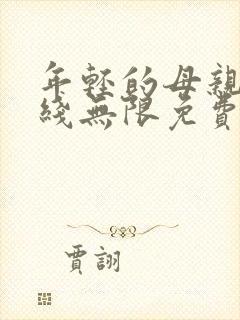 年轻的母親
綫無限免費
賈詡